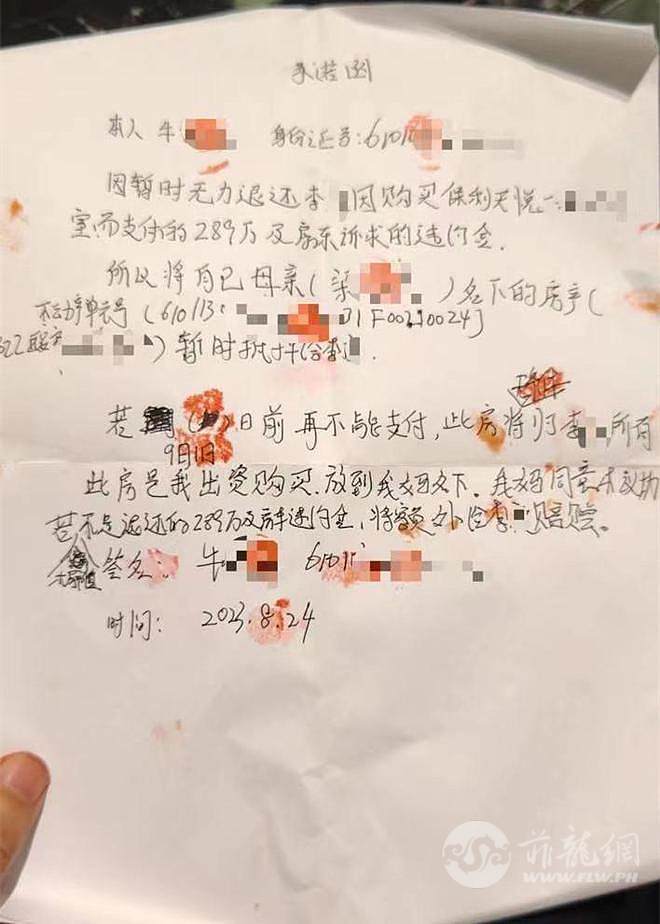 承诺函
本人 牛 身份证号:610
因暂时无力退还李 因购买保利天悦一
室而支付的289万及房东诉求的违约金.
所以将自己母亲( )名下的房产(
不动产单元号(610113 01F00210024]
)暂时抵 给李 .
若 日前再不能支付,此房将归李 所有
9月1日
此房是我出资购买.放到我 名下。我妈同意
若不足退还的289万及房东违约金,将 外给李 赔偿。
签名: 牛 610
时间: 2023.8.24
菲龍網
WWW.FLW.PH